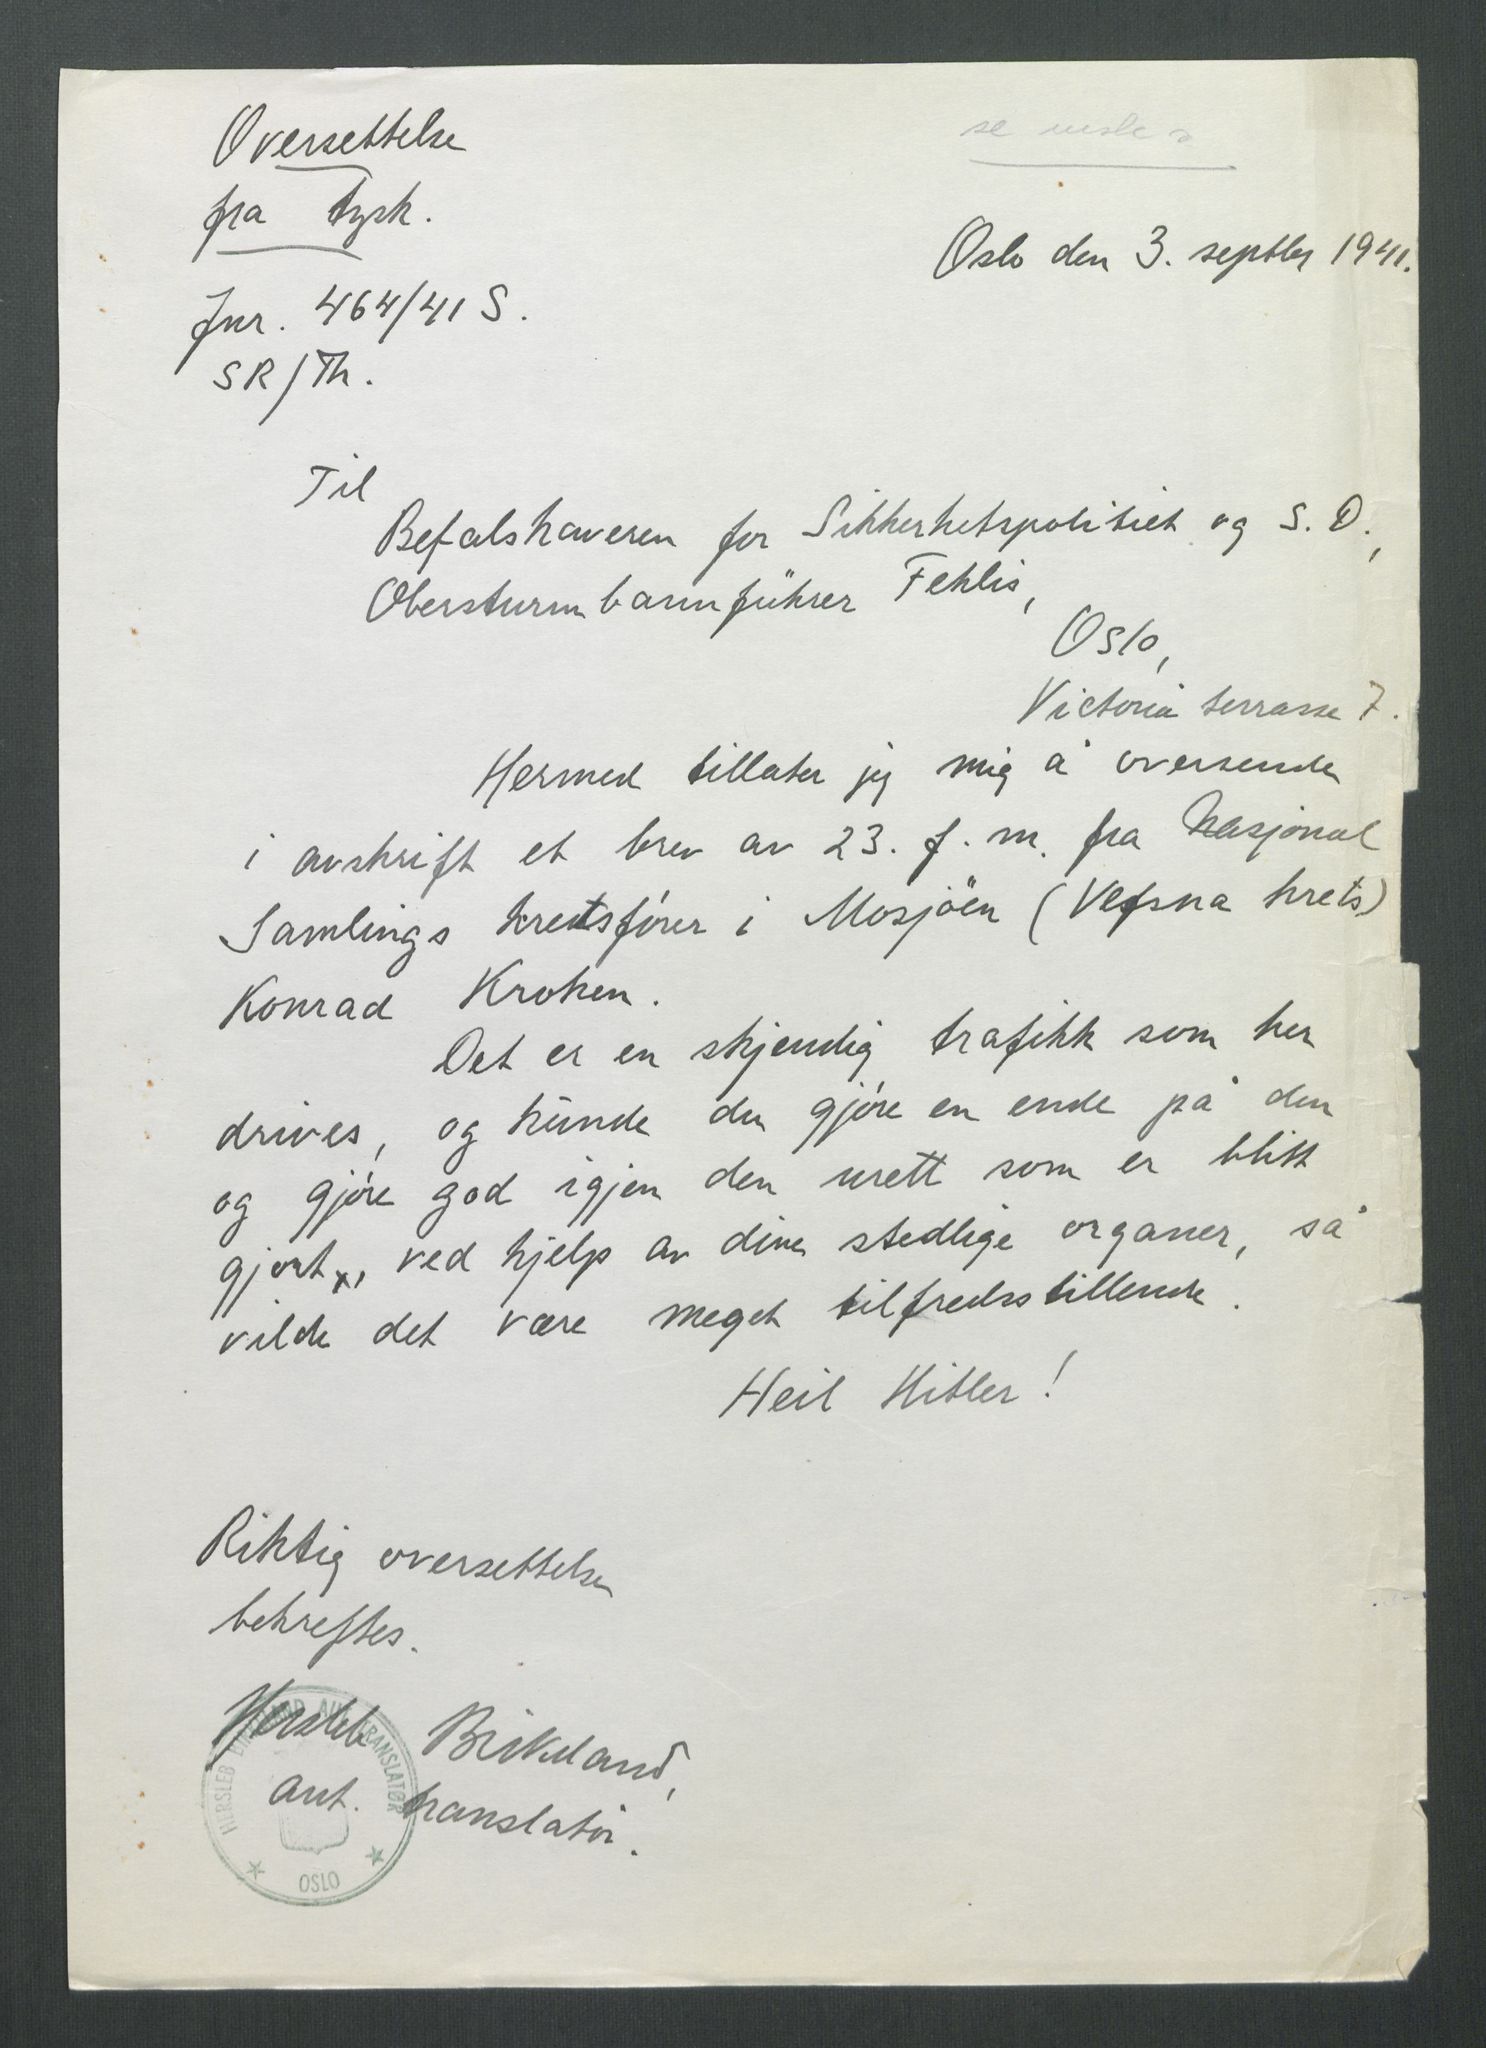 Oversettelse
fra tysk.
se neste
Oslo den 3. septbr 1941.
Jnr. 464/41 S.
SR/Th.
Til
Befalshaveren for Sikkerhetspolitiet og S.D.,
Obersturmbannführer Fehlis,
Oslo,
Victoria terrasse 7.
Hermed tillater jeg mig å oversende
i avskrift et brev av 23. f.m. fra Nasjonal
Samlings kretsfører i Mosjöen (Vefsna krets)
Konrad Kroken.
Det er en skjendig trafikk som her
drives, og kunde du gjøre en ende på den
og gjøre god igjen den urett som er blitt
gjort, ved hjelp av dine stedlige organer, så
vilde det være meget tilfredsstillende.
Heil Hitler!
Riktig oversettelse
bekreftes.
Hersleb Birkeland,
aut. translatør.
HERSLEB AUT. TRANSLATØR
OSLO